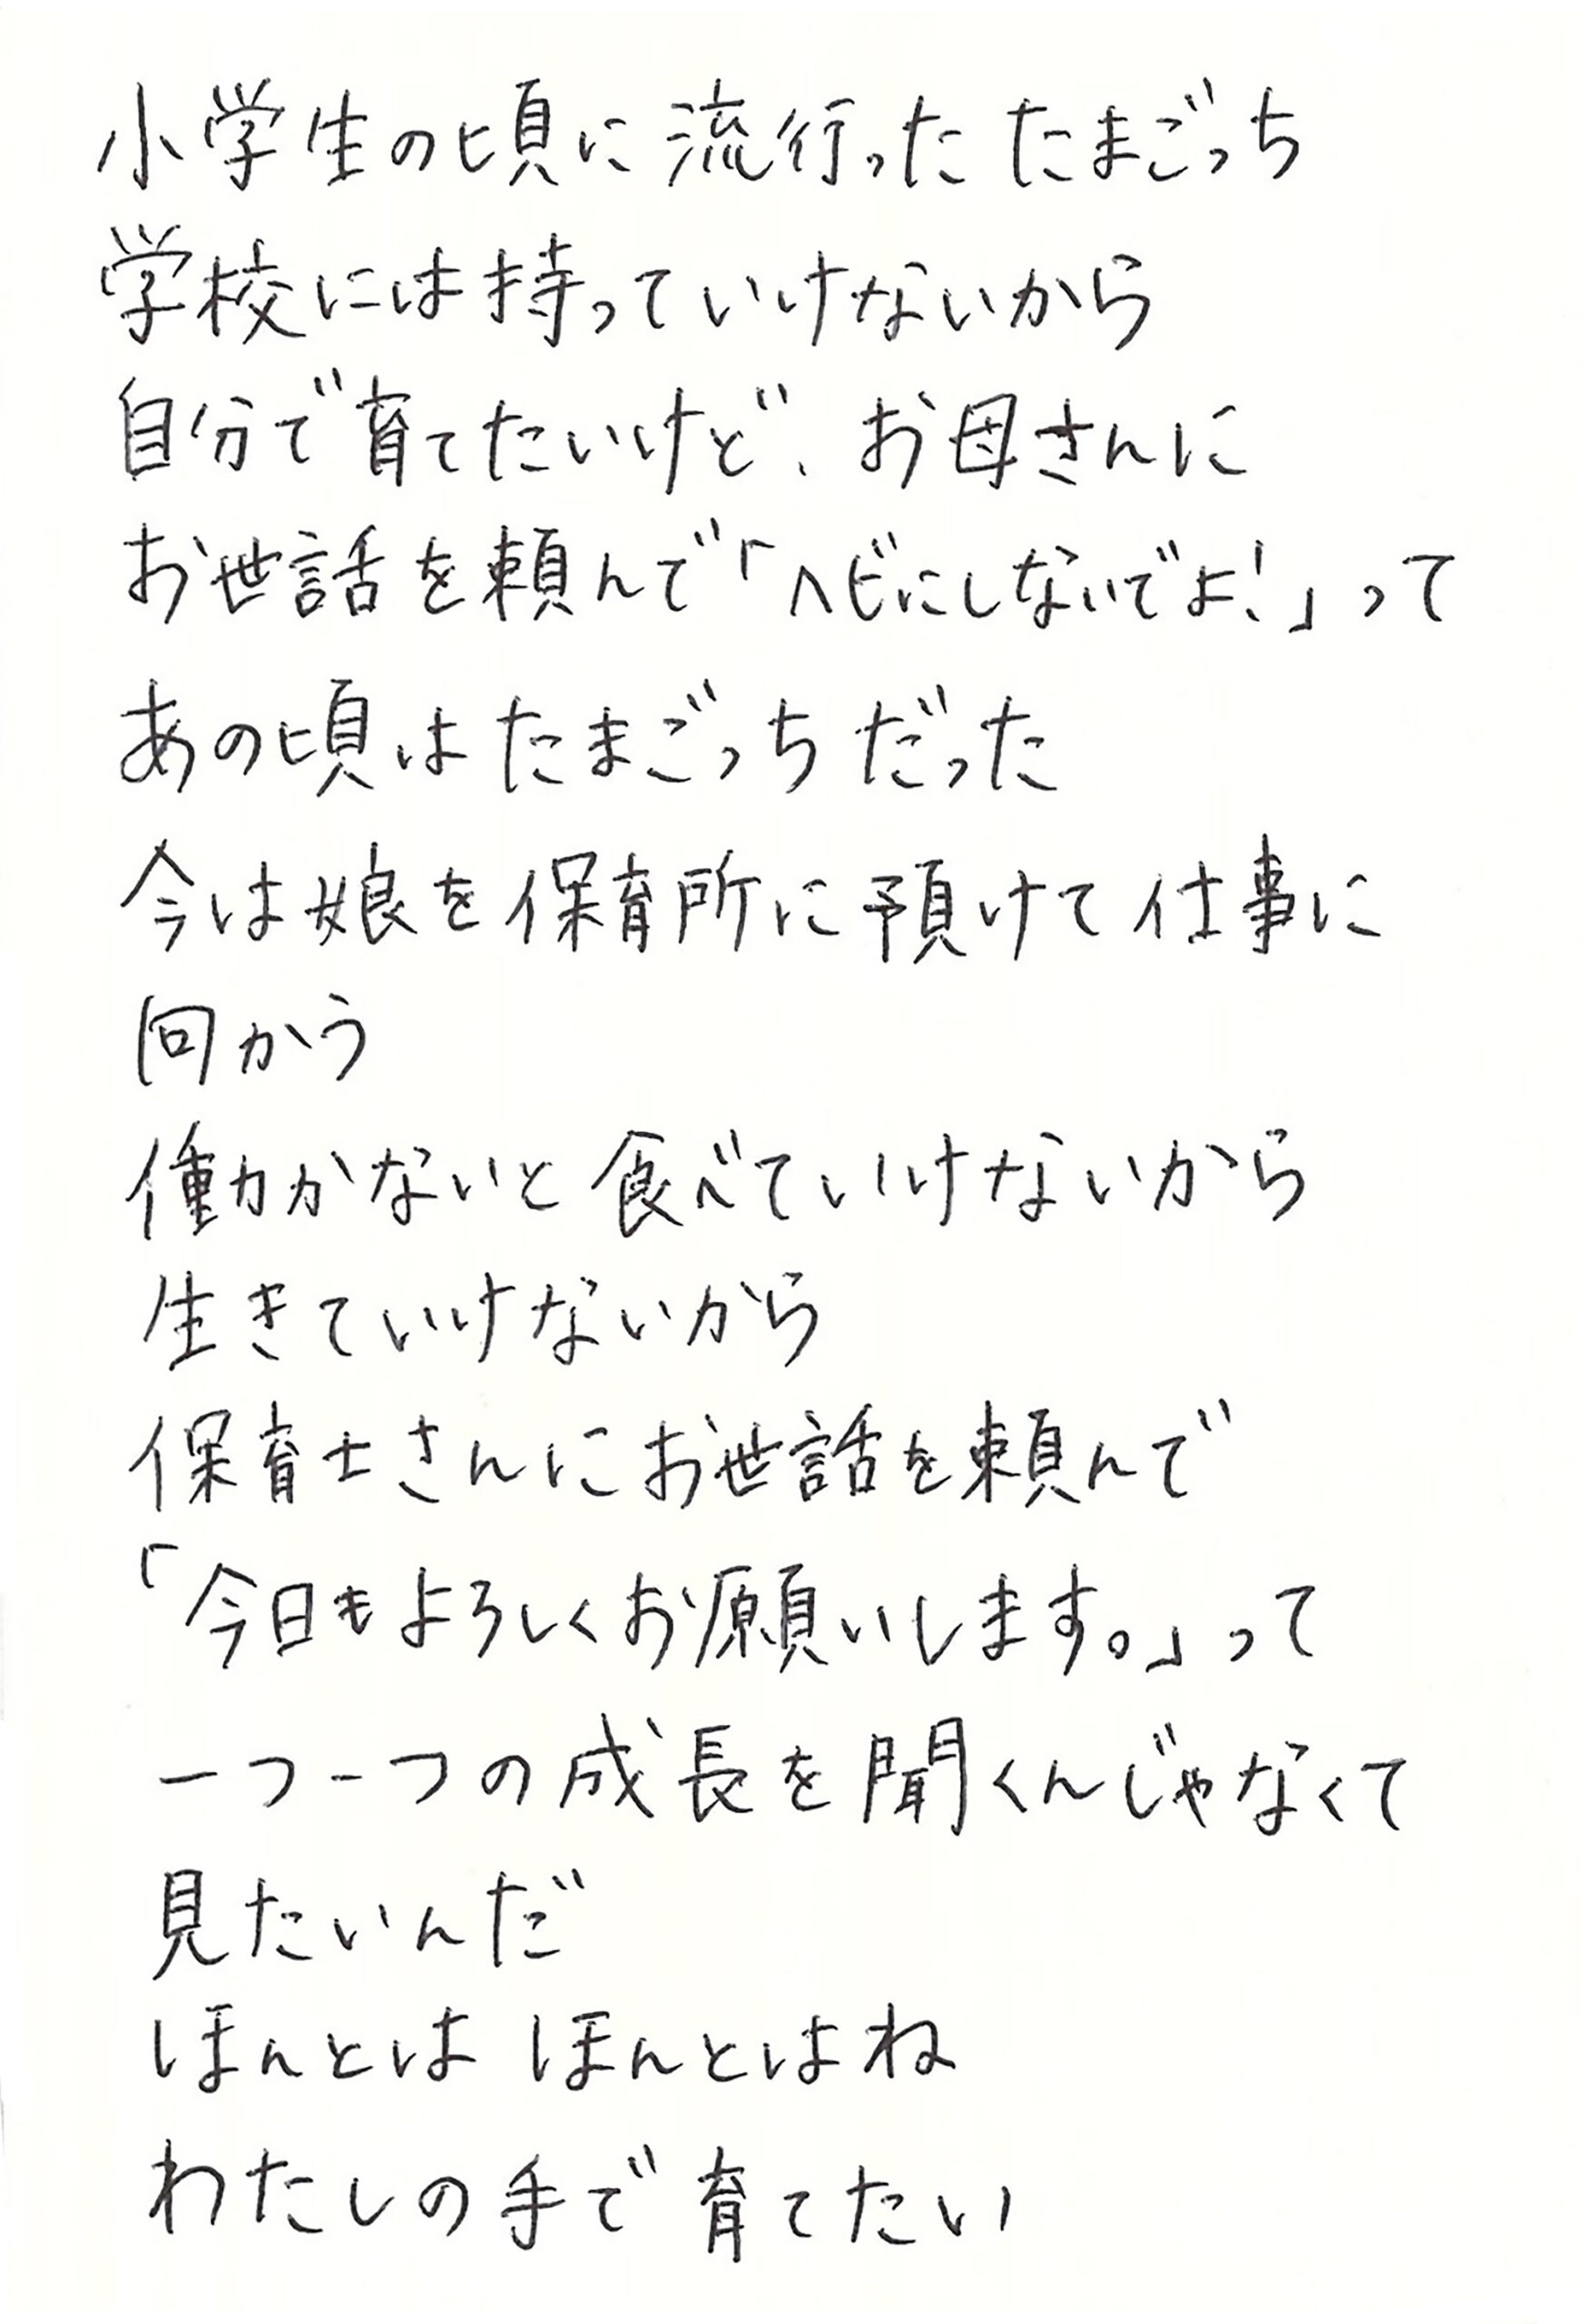 小学生の頃に流行った たまごっち
学校には持っていけないから
自分で育てたいけど、お母さんに
お世話を頼んで「ヘビにしないでよ!」って
あの頃はたまごっちだった
今は娘を保育所に預けて仕事に
向かう
働かないと食べていけないから
生きていけないから
保育士さんにお世話を頼んで
「今日もよろしくお願いします。」って
一つ一つの成長を聞くんじゃなくて
見たいんだ
ほんとは ほんとはね
わたしの手で育てたい